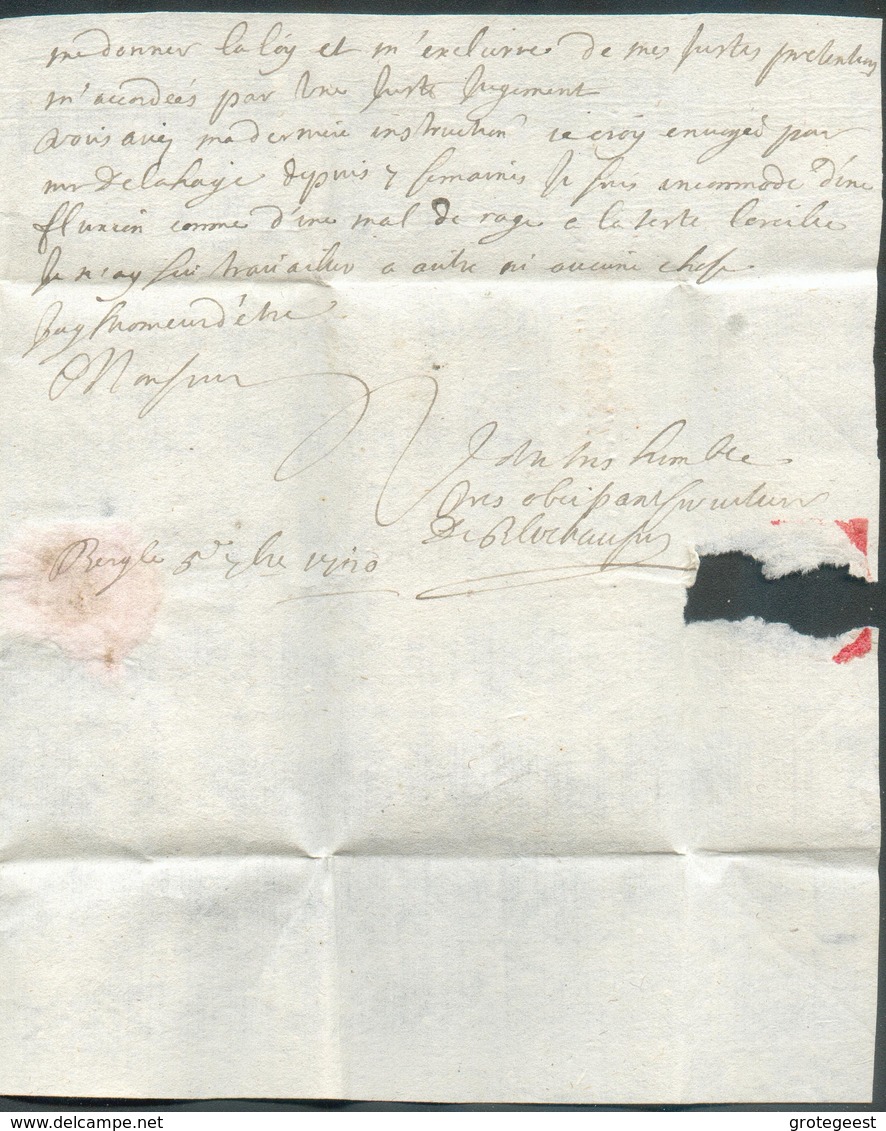 me donner la loy et m'exclurre de mes justes pretentions
m'accordeés par une juste jugement
vous avez ma derniere instruction je croy envoyeé par
mr Delahaye depuis 7 semaines je suis incommode d'une
fluxion comme d'une mal de rage a la teste l'oreille
je n'ay sui travailler a autre ni aucune chose
j'ay l'honneur d'étre
Monsieur
Votre tres humble
tres obeissant serviteur
De Blochausen
5e 7bre 1720
grotegeest